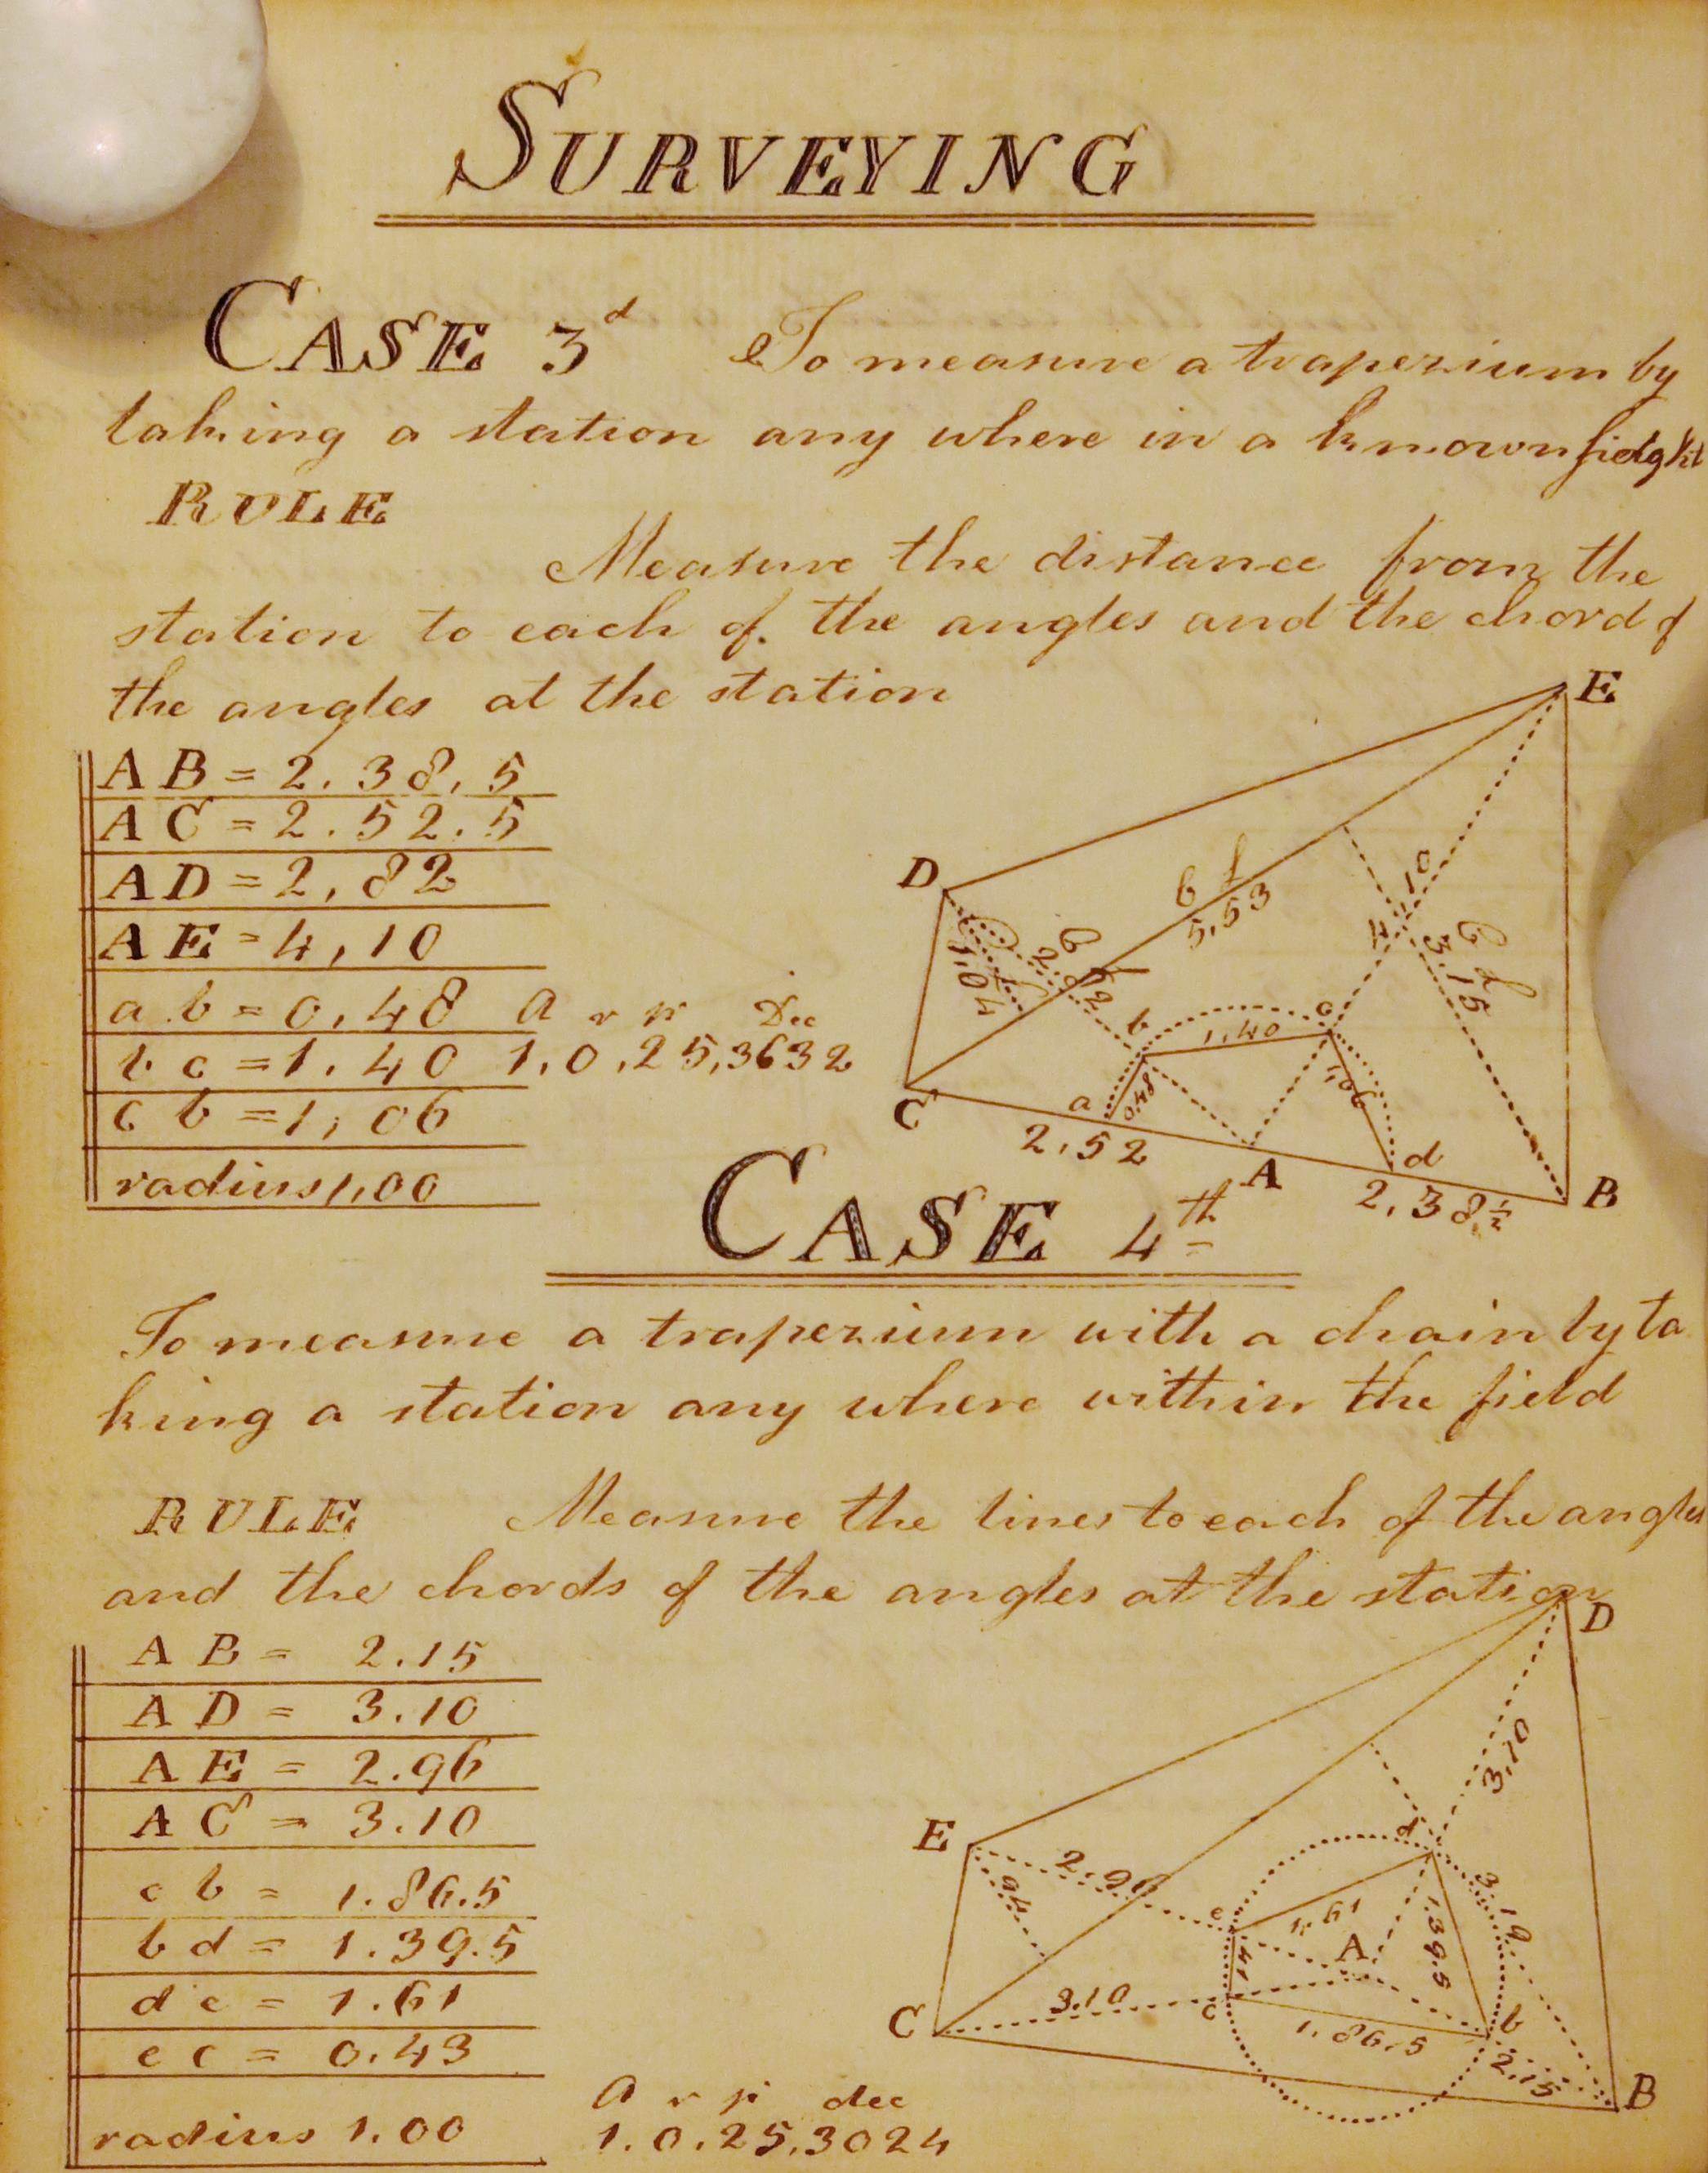 SURVEYING
CASE 3d To measure a trapezium by
taking a station any where in a known
RULE
Measure the distance from the
station to each of. the angles and the chord of
the angles at the station
AB = 2. 38, 5
AC = 2. 52. 5
AD = 2, 82
AE = 4, 10
a b = 0, 48 A r p Dec
b c = 1. 40 1, 0, 25, 3632
c b = 1, 06
radius 1,00
E
D
C
A
B
a
b
c
d
5,53
1,04
4,10
3,15
1,40
0,48
1,06
2,52
2,38 1/2
CASE 4th
To measure a trapezium with a chain by ta
king a station any where within the field
RULE Measure the lines to each of the angles
and the chords of the angles at the station
A B = 2.15
A D = 3.10
A E = 2.96
A C = 3.10
c b = 1.86.5
b d = 1.39.5
d e = 1.61
e c = 0.43
radius 1.00
A r p dec
1. 0. 25. 3024
D
E
C
B
A
d
e
c
b
3,10
2,96
94
3,19
1,61
1,39,5
3,10
1,86,5
2,15